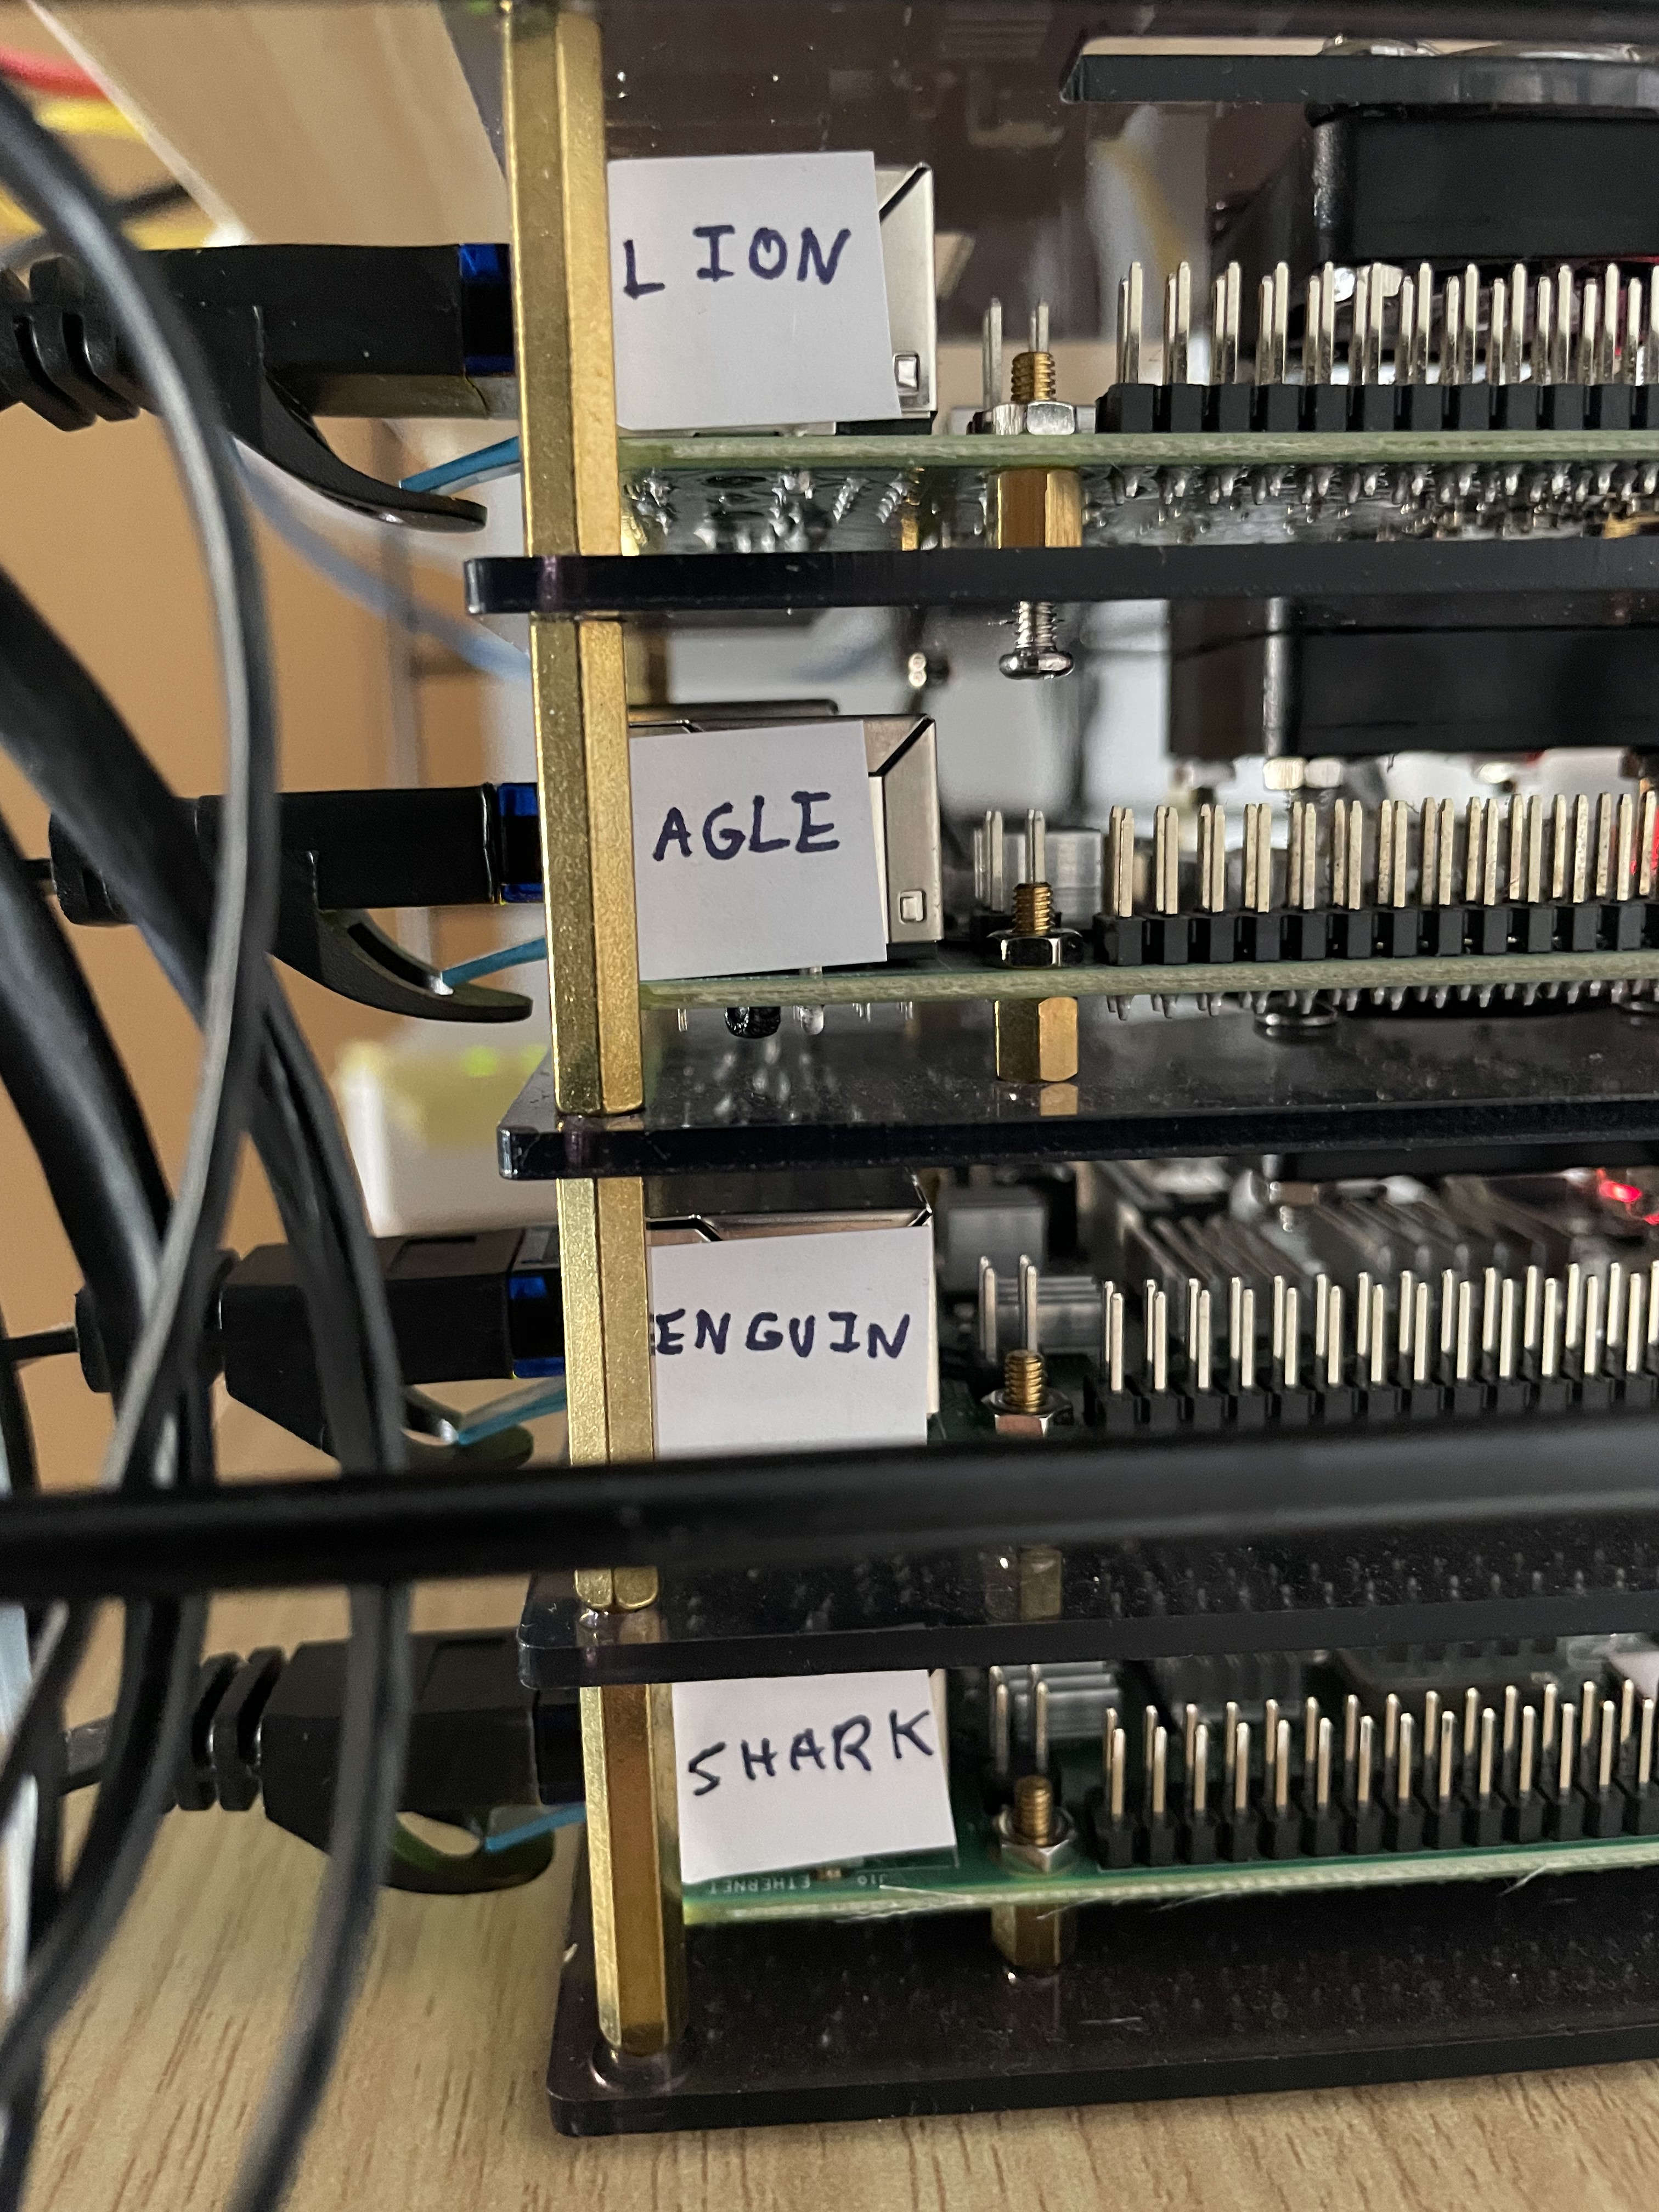 LION
AGLE
ENGUIN
SHARK
ETHERNET
J10